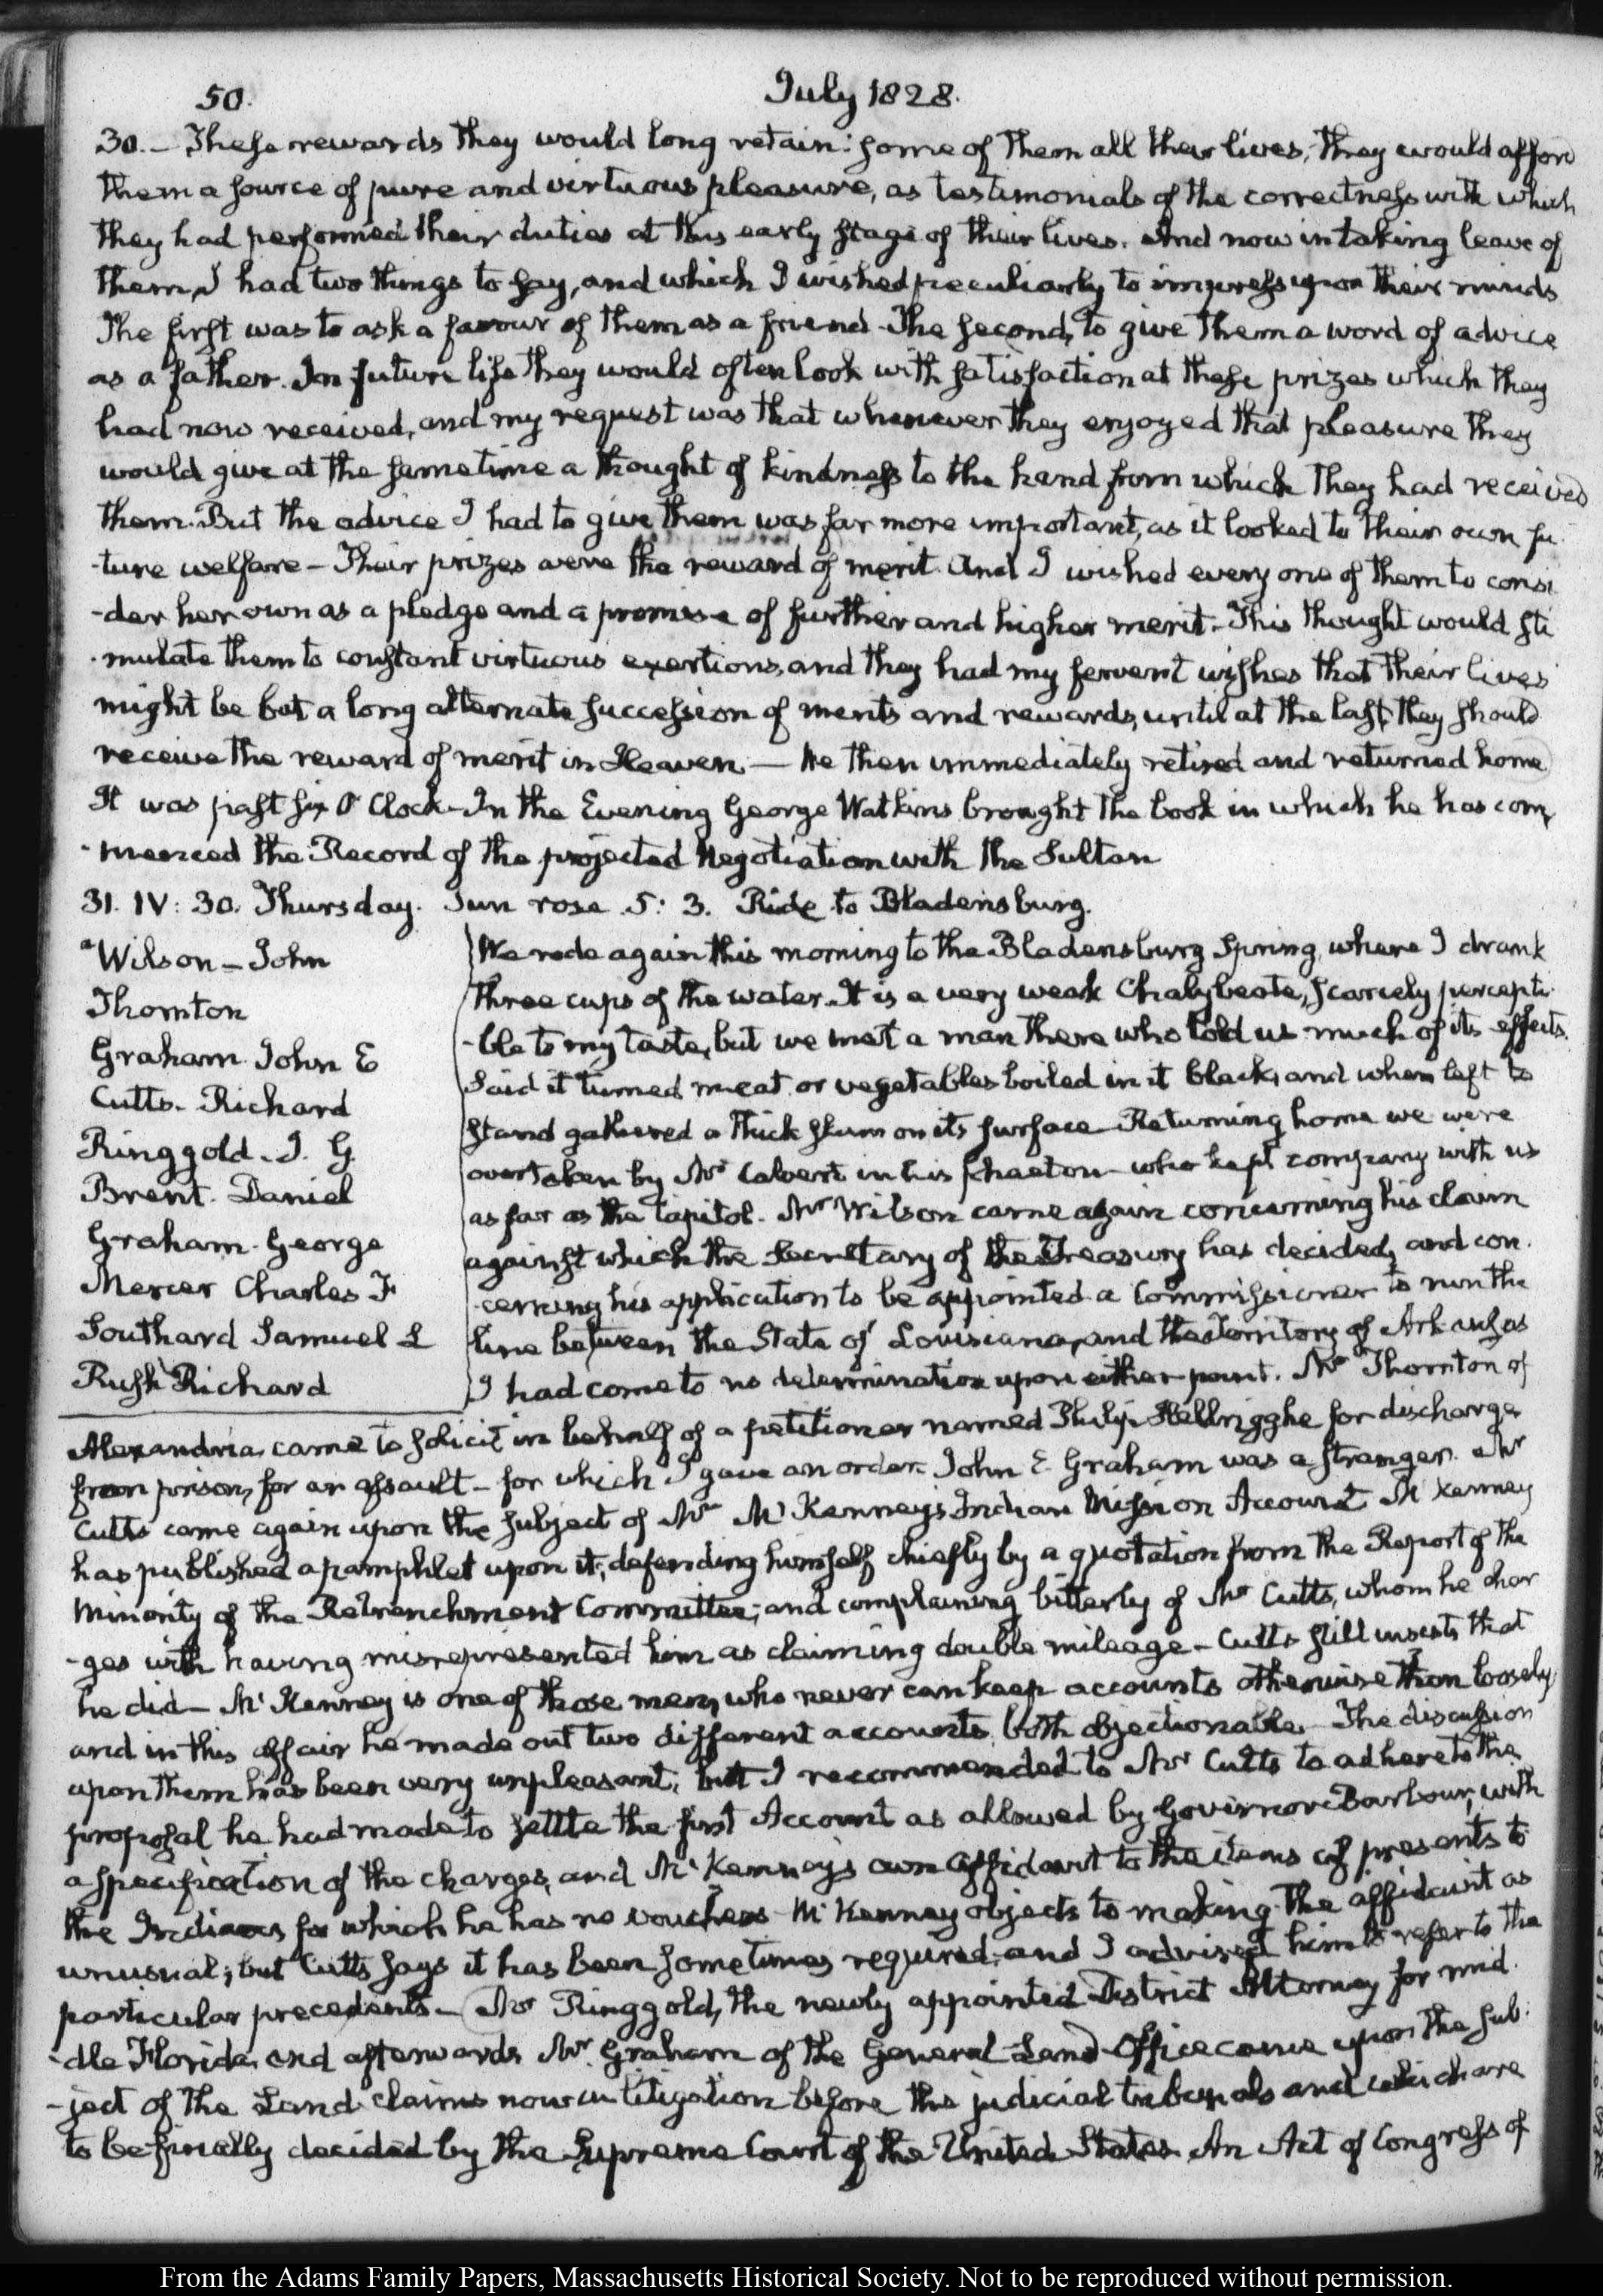 50.
July 1828.
30.— These rewards they would long retain: some of them all their lives; they would affor
them a source of pure and virtuous pleasure, as testimonials of the correctness with which
they had performed their duties at this early stage of their lives. And now in taking leave of
them, I had two things to say, and which I wished peculiarly to impress upon their minds
The first was to ask a favour of them as a friend. The second, to give them a word of advice
as a father. In future life they would often look with satisfaction at these prizes which they
had now received, and my request was that whenever they enjoyed that pleasure they
would give at the same time a thought of kindness to the hand from which they had received
them. But the advice I had to give them was far more important, as it looked to their own fu
-ture welfare — Their prizes were the reward of merit. And I wished every one of them to consi
-der her own as a pledge and a promise of further and higher merit. This thought would sti
-mulate them to constant virtuous exertions, and they had my fervent wishes that their lives
might be but a long alternate succession of merits and rewards, until at the last, they should
receive the reward of merit in Heaven — We then immediately retired and returned home
It was past six O'Clock — In the Evening George Watkins brought the book in which he has com,
-menced the Record of the projected Negotiation with the Sultan
31. IV: 30. Thursday. Sun rose 5: 3. Ride to Bladensburg.
Wilson — John
Thornton
Graham John E
Cutts. Richard
Ringgold. J. G
Brent. Daniel
Graham. George
Mercer Charles F
Southard Samuel L
Rush Richard
We rode again this morning to the Bladensburg Spring, where I drank
three cups of the water. It is a very weak Chalybeate, scarcely percepti
-ble to my taste, but we met a man there who told us much of its effects.
Said it turned meat or vegetables boiled in it black, and when left to
stand gathered a thick skum on its surface — Returning home we were
overtaken by Mr Calvert in his phaeton — who kept company with us
as far as the Capitol. Mr Wilson came again concerning his claim
against which the Secretary of the Treasury has decided, and con
-cerning his application to be appointed a Commissioner to run the
line between the State of Louisiana, and the Territory of Arkansas
I had come to no determination upon either point. Mr Thornton of
Alexandria came to solicit in behalf of a petitioner named Philip for discharge
from prison, for an assault — for which I gave an order. John E. Graham was a stranger. Mr
Cutts came again upon the subject of Mr McKenney's Indian Mission Account McKenney
has published a pamphlet upon it; defending himself chiefly by a quotation from the Report of the
Minority of the Retrenchment Committee; and complaining bitterly of Mr Cutts, whom he char
-ges with having misrepresented him as claiming double mileage — Cutts still insists that
he did — McKenney is one of those men, who never can keep accounts otherwise than loosely,
and in this affair he made out two different accounts both objectionable. The discussion
upon them has been very unpleasant, but I recommended to Mr Cutts to adhere to the
proposal he had made to settle the first Account as allowed by Governor Barbour, with
a specification of the charges, and McKenney's own affidavit to the items of presents to
the Indians for which he has no vouchers — McKenney objects to making the affidavit as
unusual; but Cutts says it has been sometimes required; and I advised him to refer to the
particular precedents — Mr Ringgold, the newly appointed District Attorney for mid
-dle Florida, and afterwards Mr Graham of the General Land Office came upon the sub
-ject of the Land claims now in litigation before the judicial tribunals and which are
to be finally decided by the Supreme Court of the United States. An Act of Congress of
From the Adams Family Papers, Massachusetts Historical Society. Not to be reproduced without permission.